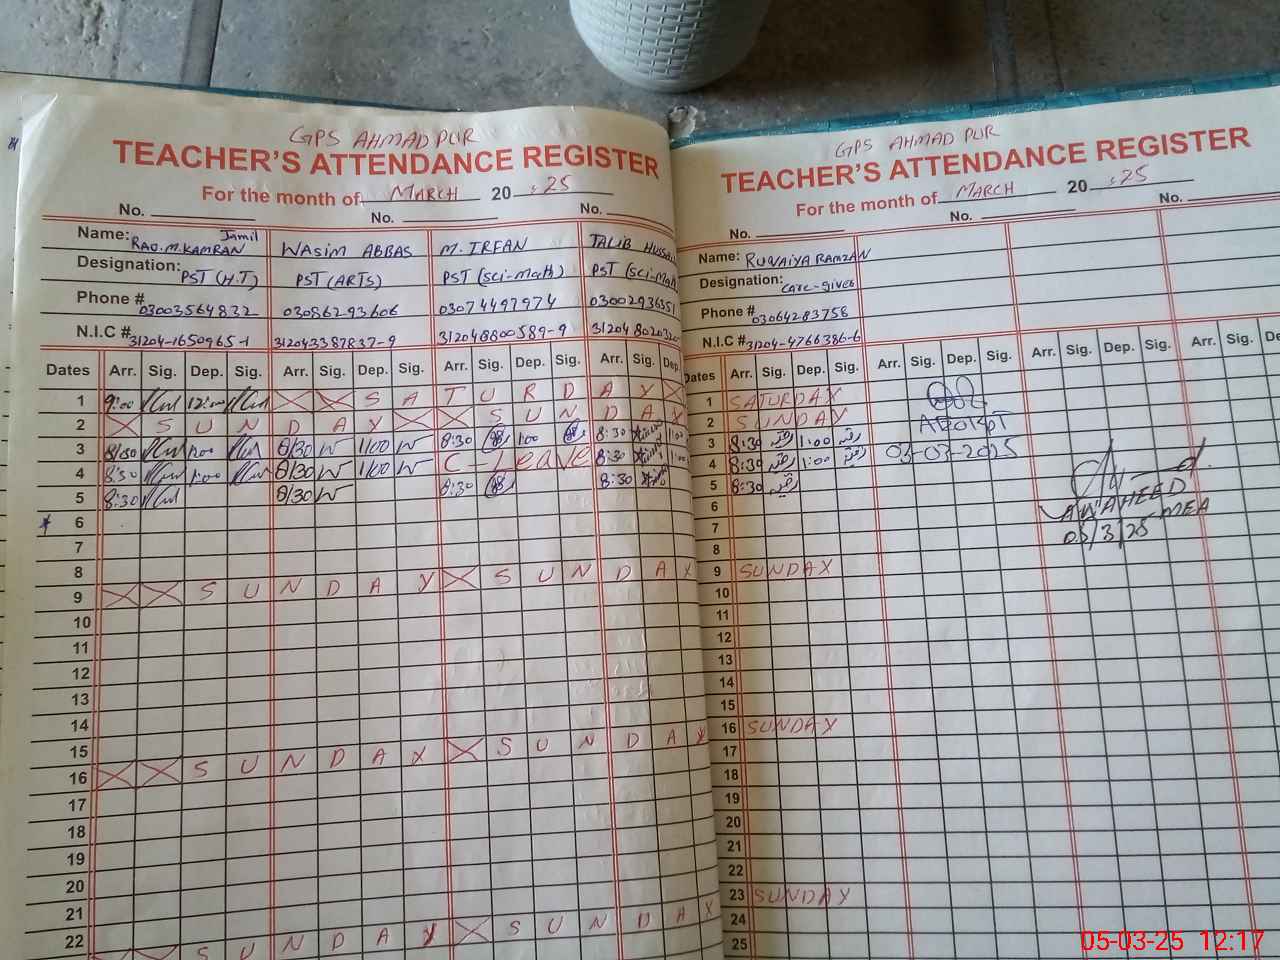 GPS AHMAD PUR
TEACHER'S ATTENDANCE REGISTER
For the month of MARCH 20 25
No. No. No.
Name: RAO.M.KAMRAN Jamil WASIM ABBAS M. IRFAN TALIB HUSSAI
Designation: PST (H.T) PST (ARTS) PST (Sci-Math) PST (Sci-Mat
Phone # 03003564832 03086293606 03074497974 03002936351
N.I.C # 31204-1650965-1 312043387837-9 312048800589-9 31204802032
Dates Arr. Sig. Dep. Sig. Arr. Sig. Dep. Sig. Arr. Sig. Dep. Sig. Arr. Sig. Dep.
1 9:00 12:00 SATURDAY
2 SUNDAY SUNDAY
3 8/30 1:00 8/30 1/00 8:30 1:00 8:30 1:00
4 8:30 1:00 8/30 1/00 C-Leave 8:30 1:00
5 8:30 8/30 8:30 8:30
6
7
8
9 SUNDAY SUNDAY
10
11
12
13
14
15
16 SUNDAY SUNDAY
17
18
19
20
21
22
SUNDAY SUNDAY
GPS AHMAD PUR
TEACHER'S ATTENDANCE REGISTER
For the month of MARCH 20 25
No. No. No.
Name: RUQAIYA RAMZAN
Designation: care-giver
Phone # 03064283758
N.I.C # 31204-4766386-6
Dates Arr. Sig. Dep. Sig. Arr. Sig. Dep. Sig. Arr. Sig. Dep. Sig. Arr. Sig. De
1 SATURDAY
2 SUNDAY
3 8:30 رقیہ 1:00 رقیہ 03-03-2025
4 8:30 رقیہ 1:00 رقیہ
5 8:30 رقیہ
6
7 MEA
8 05/3/25
9 SUNDAY
10
11
12
13
14
15
16 SUNDAY
17
18
19
20
21
22
23 SUNDAY
24
25
05-03-25 12:17